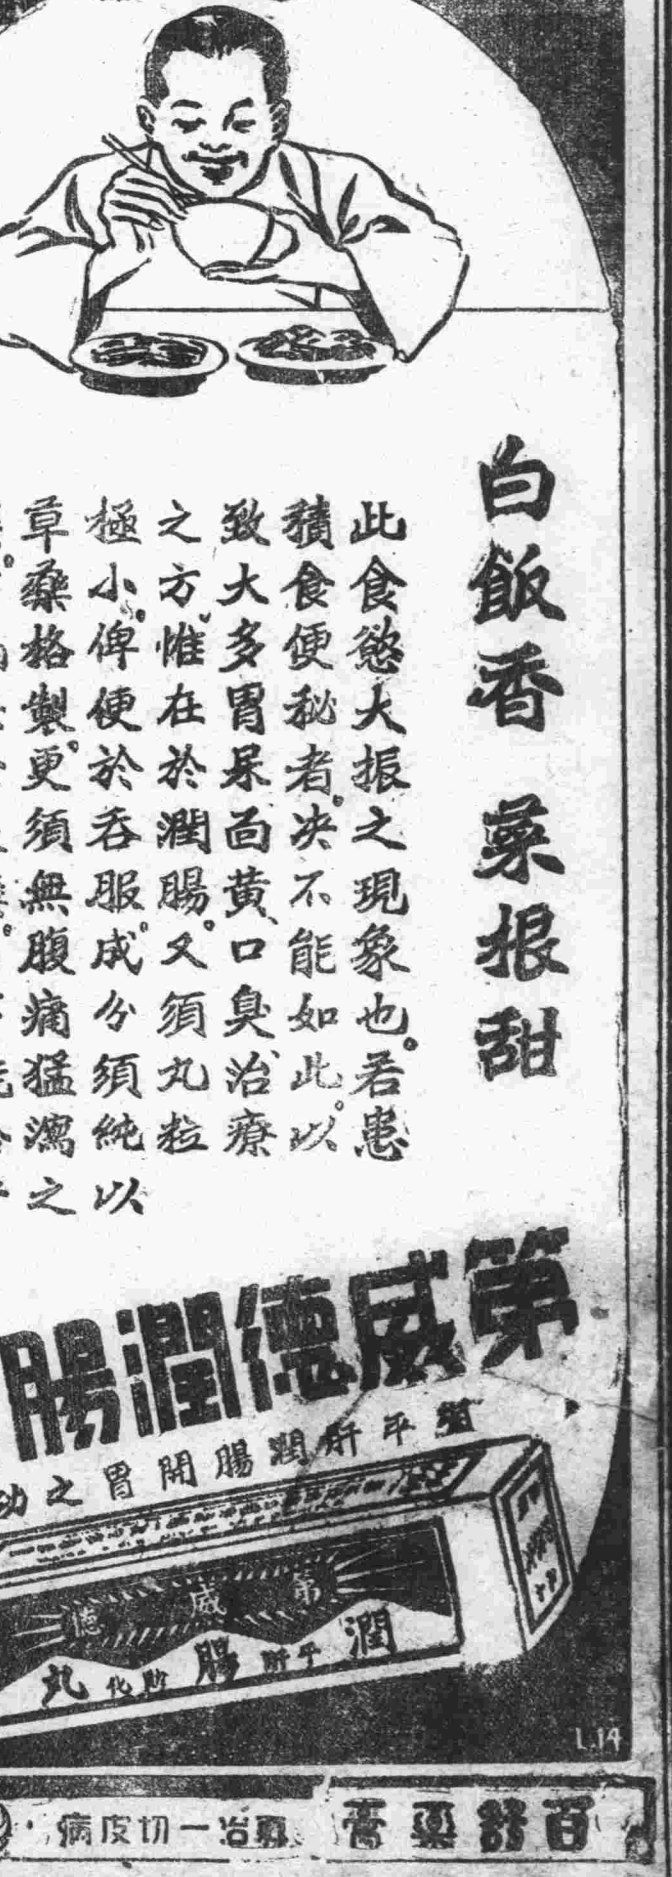 白飯香 菜根甜
此食慾大振之現象也。若患
積食便秘者。决不能如此。以
致大多胃呆面黄、口臭、治療
之方、惟在於潤腸。又須丸粒
極小。俾便於吞服。成分須純以
草藥格製。更須無腹痛猛瀉之
第威德潤腸
平肝潤腸開胃之功
第威德
潤平肝腸化丸
L.14
百舒藥膏
專治一切皮膚病